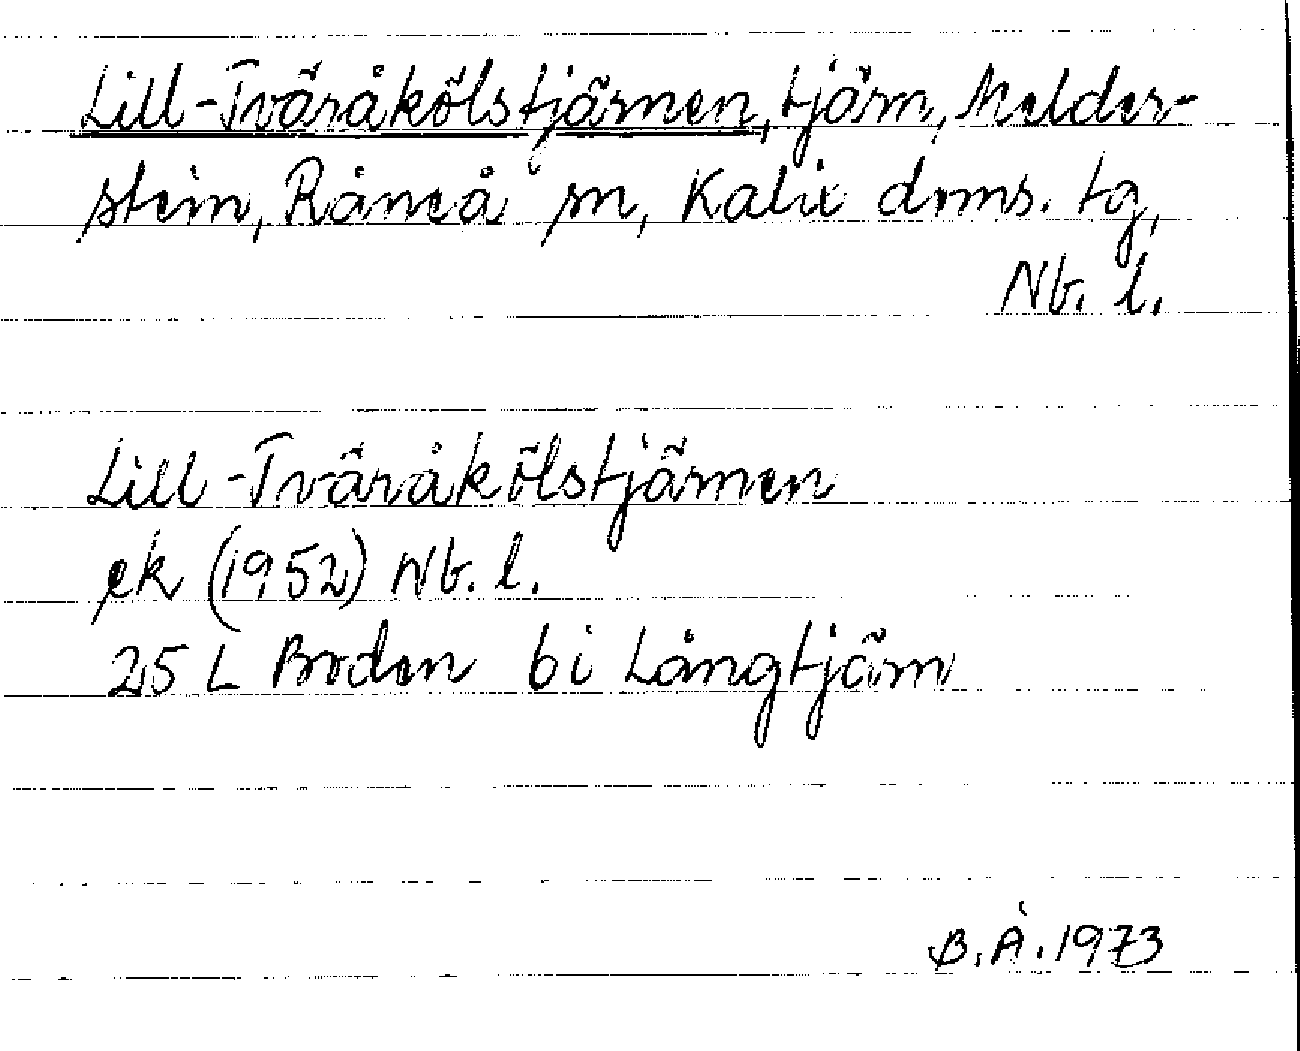 Lill-Tväråkölstjärnen, tjärn, Melder-
stein, Råneå sn, Kalix doms. tg,
Nb. l.
Lill-Tväråkölstjärnen
ek (1952) Nb. l.
25 L Boden bi Långtjärn
B.Å. 1973